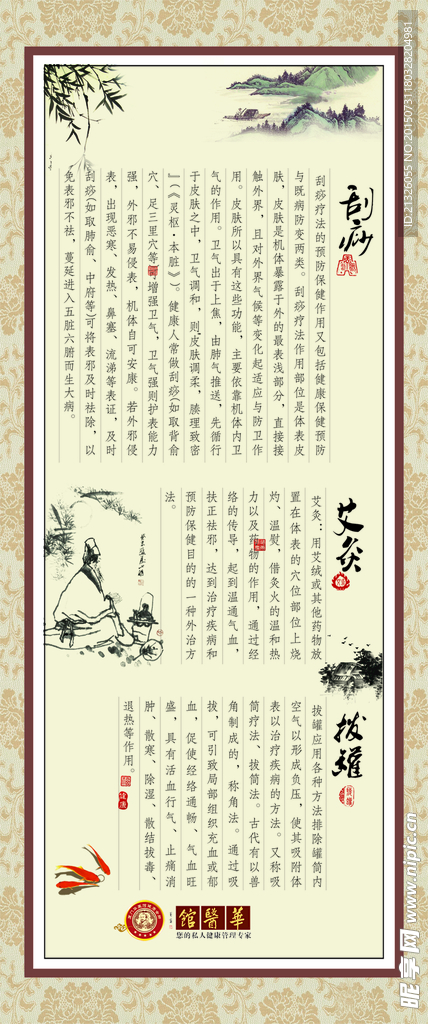 刮痧
刮痧疗法的预防保健作用又包括健康保健预防
与既病防变两类。刮痧疗法作用部位是体表皮
肤，皮肤是机体暴露于外的最表浅部分，直接接
触外界，且对外界气候等变化起适应与防卫作
用。皮肤所以具有这些功能，主要依靠机体内卫
气的作用。卫气出于上焦，由肺气推送，先循行
于皮肤之中，卫气调和，则“皮肤调柔，腠理致密
”（《灵枢·本脏》）。健康人常做刮痧（如取背俞
穴、足三里穴等）可增强卫气，卫气强则护表能力
强，外邪不易侵表，机体自可安康。若外邪侵
表，出现恶寒、发热、鼻塞、流涕等表证，及时
刮痧（如取肺俞、中府等）可将表邪及时祛除，以
免表邪不祛，蔓延进入五脏六腑而生大病。
艾灸
艾灸：用艾绒或其他药物放
置在体表的穴位部位上烧
灼、温熨，借灸火的温和热
力以及药物的作用，通过经
络的传导，起到温通气血，
扶正祛邪，达到治疗疾病和
预防保健目的的一种外治方
法。
拔罐
拔罐应用各种方法排除罐筒内
空气以形成负压，使其吸附体
表以治疗疾病的方法。又称吸
筒疗法、拔筒法。古代有以兽
角制成的，称角法。通过吸
拔，可引致局部组织充血或郁
血，促使经络通畅、气血旺
盛，具有活血行气、止痛消
肿、散寒、除湿、散结拔毒、
退热等作用。
館醫華
您的私人健康管理专家
昵享网 www.nipic.cn
ID:21326055 NO:20150731180328204981